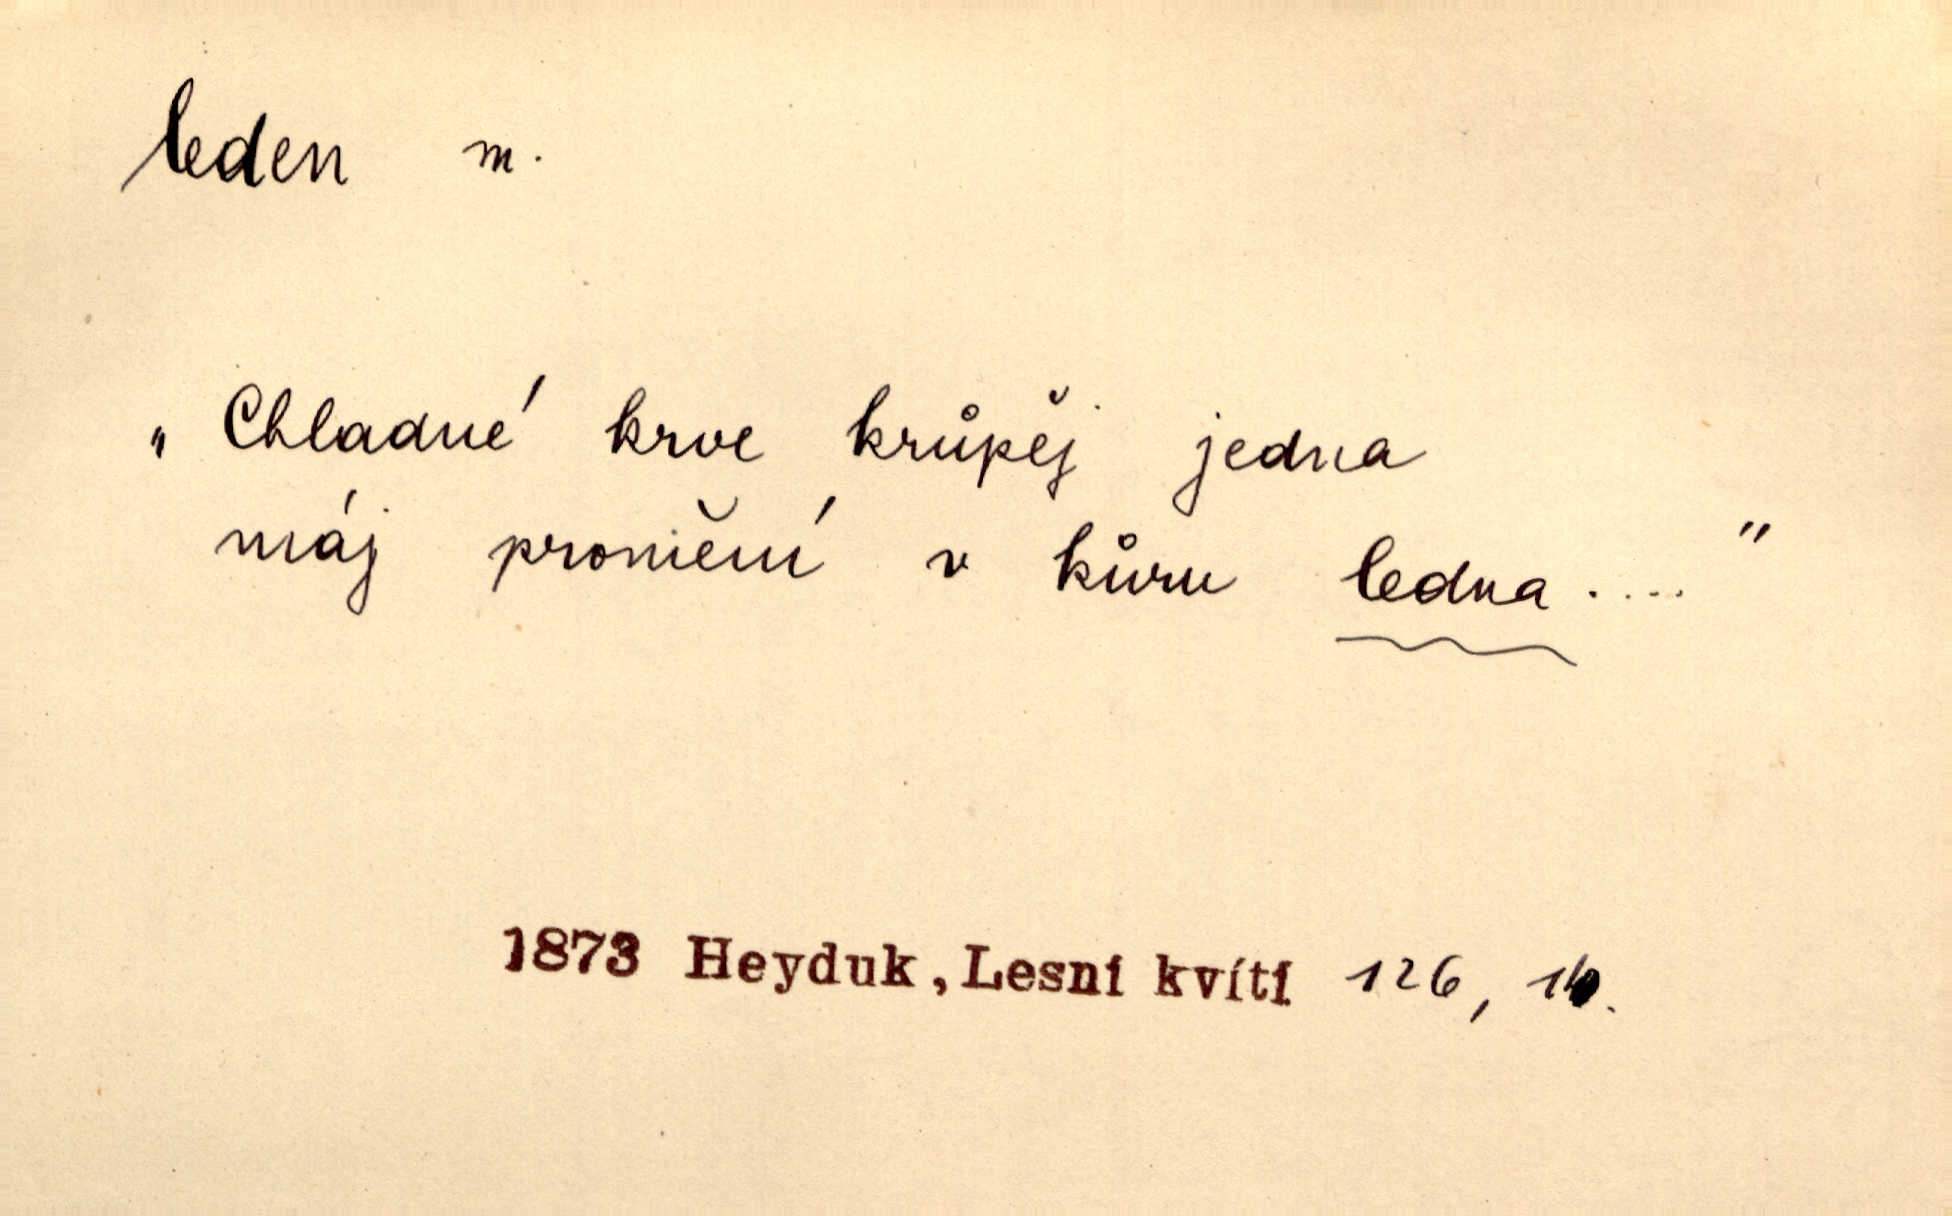 leden m.
„Chladné krve krůpěj jedna
máj promění v kůru ledna....“
1873 Heyduk, Lesní kvítí 126,